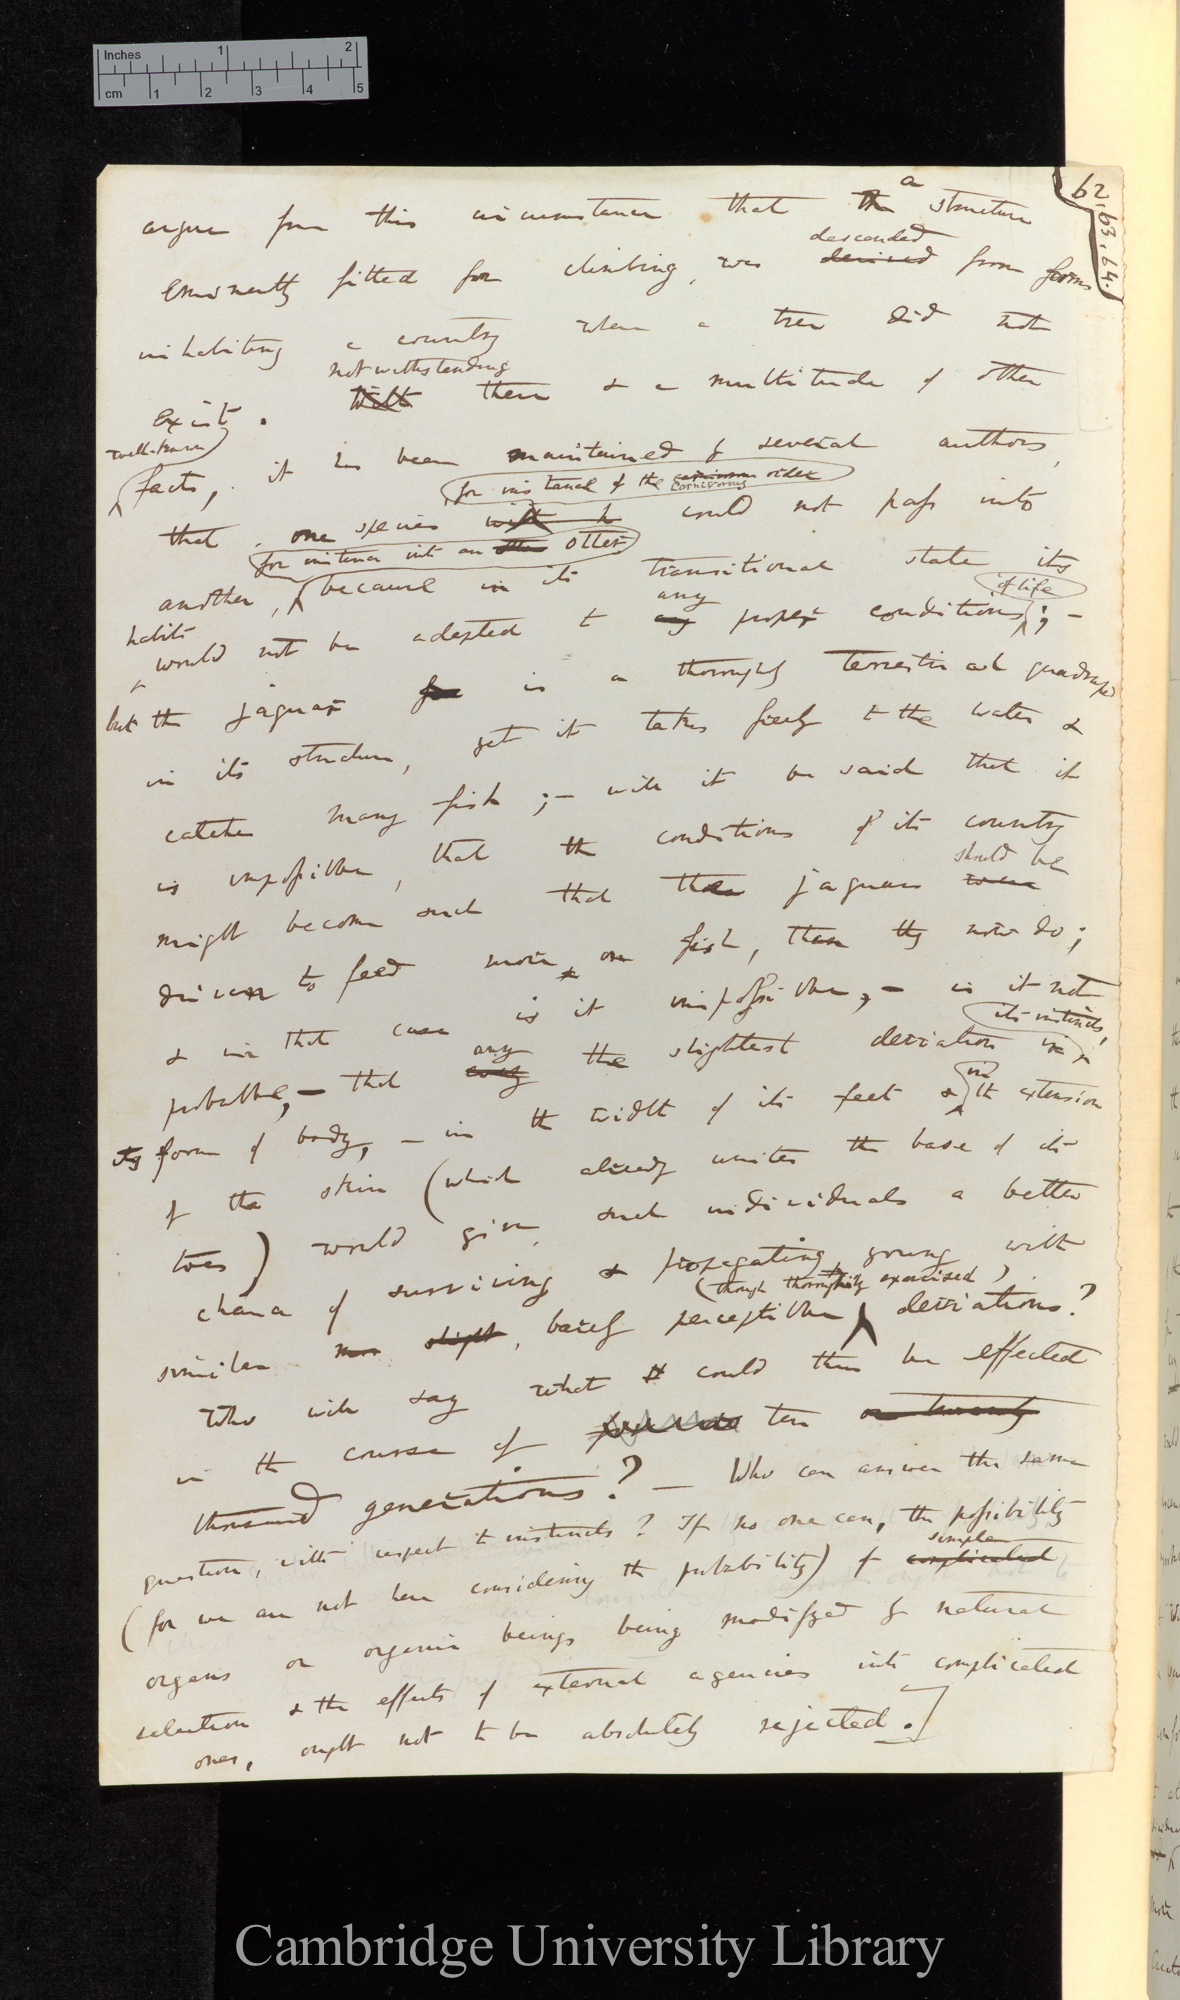 Inches 1 2
cm 1 2 3 4 5
62.63.64.
a
argue from this circumstance that the structure
descended
eminently fitted for climbing, was derived from forms
inhabiting a country where a tree did not
notwithstanding
exist. With these & a multitude of other
well-known
facts, it has been maintained by several authors,
for instance of the carnivorous order
that one species with h could not pass into
for instance into an otter
another, because in its transitional state its
of life
any
habits would not be adapted to any proper conditions; –
but the jaguar is a thoroughly terrestrial quadruped
in its structure, yet it takes freely to the water &
catches many fish; – will it be said that it
is impossible, that the conditions of its country
should be
might become such that the jaguars were
driven to feed more on fish, than they now do;
& in that case is it impossible, – is it not
its instincts,
any
probable, – that every the slightest deviation in
in
its form of body, – in the width of its feet & the extension
of the skin (which already unites the base of its
toes) would give such individuals a better
chance of surviving & propagating young with
(though thoroughly exercised)
similar slight, barely perceptible deviations?
Who will say what could thus be effected
in the course of ten or twenty
thousand generations? – Who can answer the same
question, with respect to instincts? If no one can, the possibility
simple
(for we are not here considering the probability) of complicated
organs or organic beings being modifyed by natural
selection & the effects of external agencies into complicated
ones, ought not to be absolutely rejected.]
Cambridge University Library